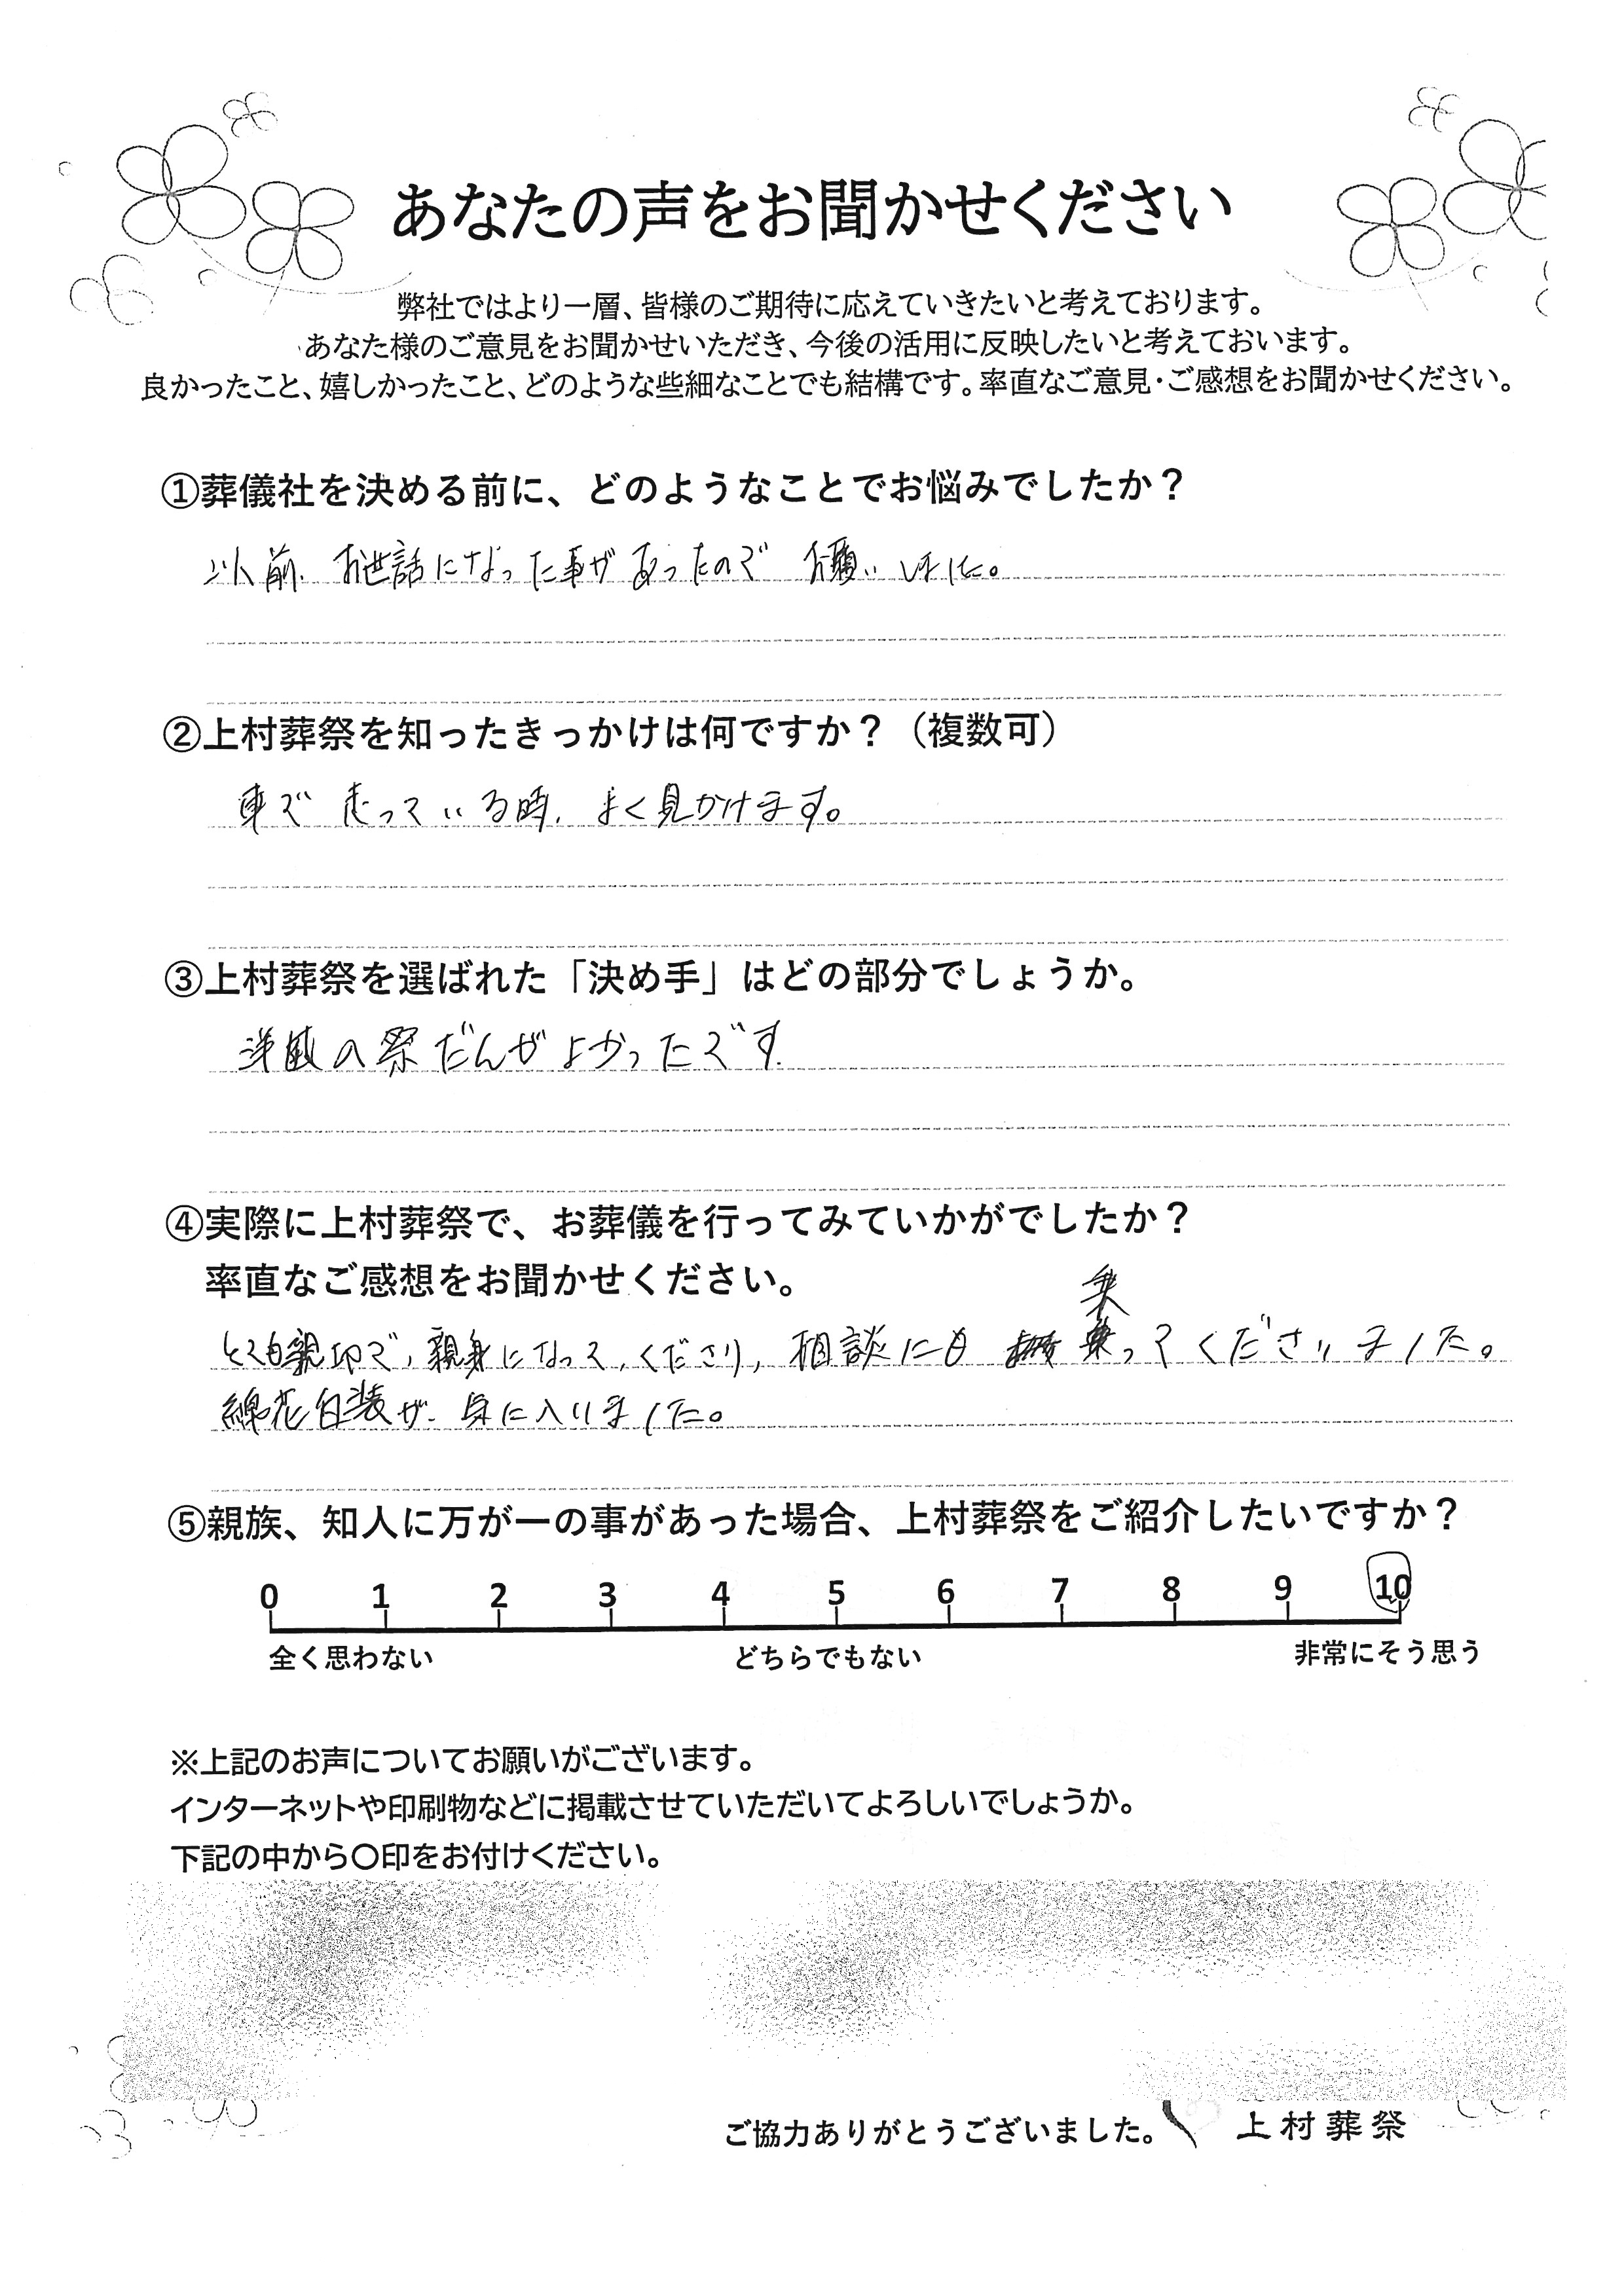 あなたの声をお聞かせください
弊社ではより一層、皆様のご期待に応えていきたいと考えております。
あなた様のご意見をお聞かせいただき、今後の活用に反映したいと考えておいます。
良かったこと、嬉しかったこと、どのような些細なことでも結構です。率直なご意見・ご感想をお聞かせください。
①葬儀社を決める前に、どのようなことでお悩みでしたか?
以前、お世話になった事があったので お願いしました。
②上村葬祭を知ったきっかけは何ですか?(複数可)
車で 走っている時、よく見かけます。
③上村葬祭を選ばれた「決め手」はどの部分でしょうか。
洋風の祭だんがよかったです。
④実際に上村葬祭で、お葬儀を行ってみていかがでしたか?
率直なご感想をお聞かせください。
とても親切で、親身になって、くださり、相談にも 乗ってくださいました。
綿花白装が、気に入りました。
⑤親族、知人に万が一の事があった場合、上村葬祭をご紹介したいですか?
0 1 2 3 4 5 6 7 8 9 10
全く思わない どちらでもない 非常にそう思う
※上記のお声についてお願いがございます。
インターネットや印刷物などに掲載させていただいてよろしいでしょうか。
下記の中から〇印をお付けください。
ご協力ありがとうございました。 上村葬祭